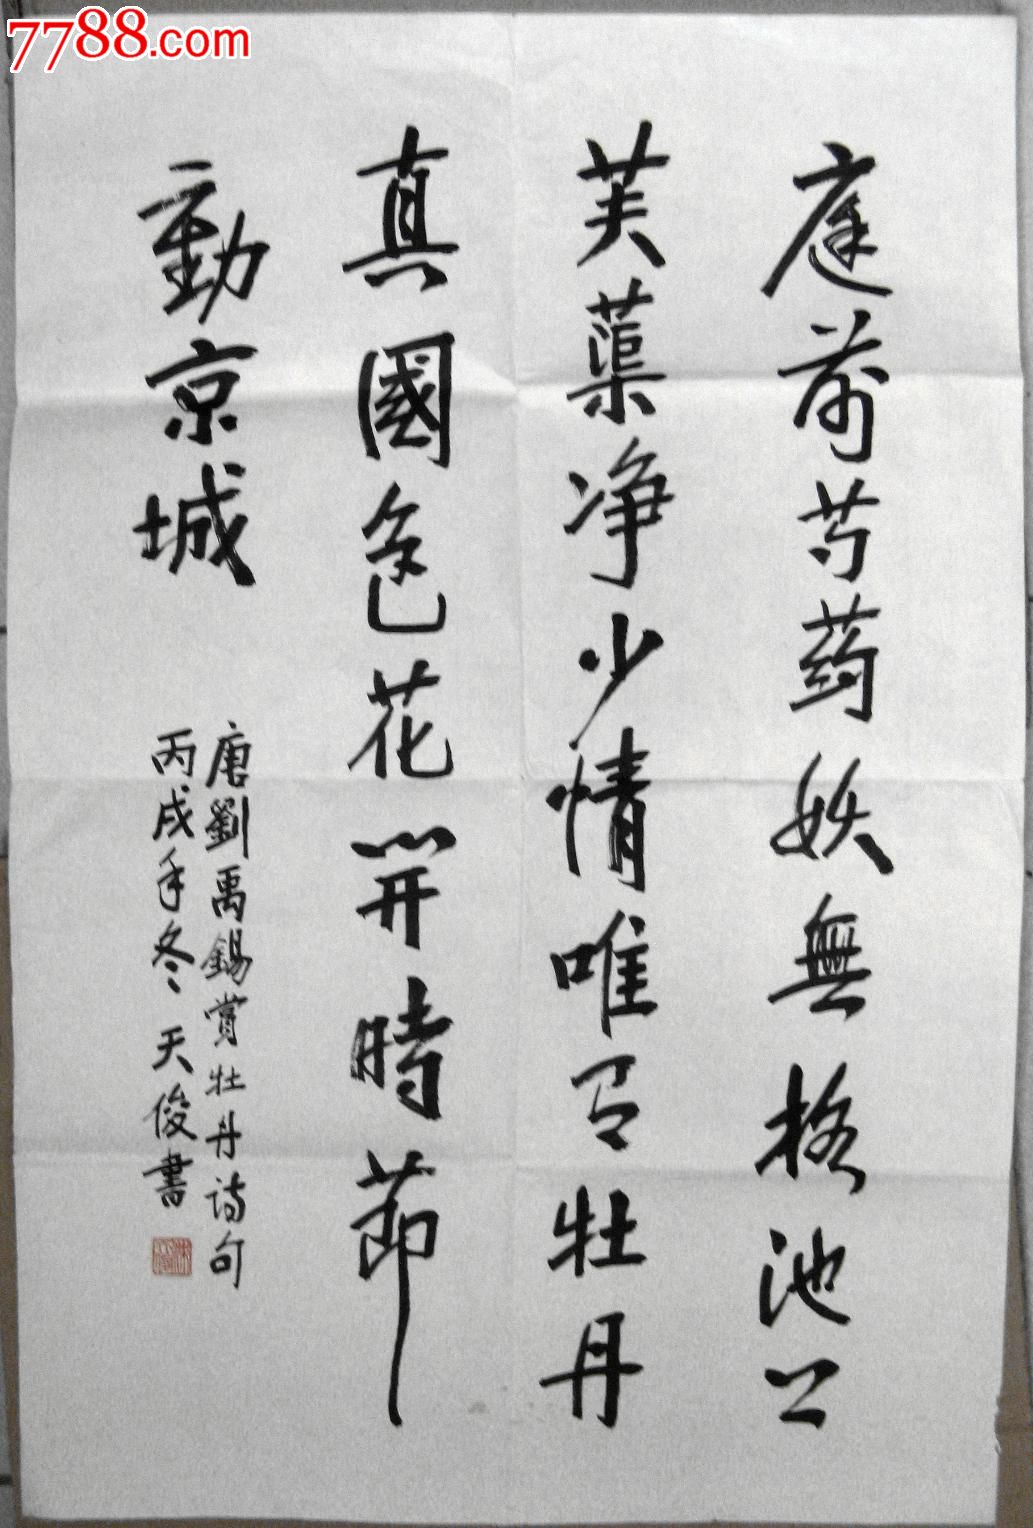 7788.com
庭前芍藥妖無格池上
芙蕖净少情唯有牡丹
真國色花開時節
動京城
唐劉禹錫賞牡丹詩句
丙戌年冬天俊書